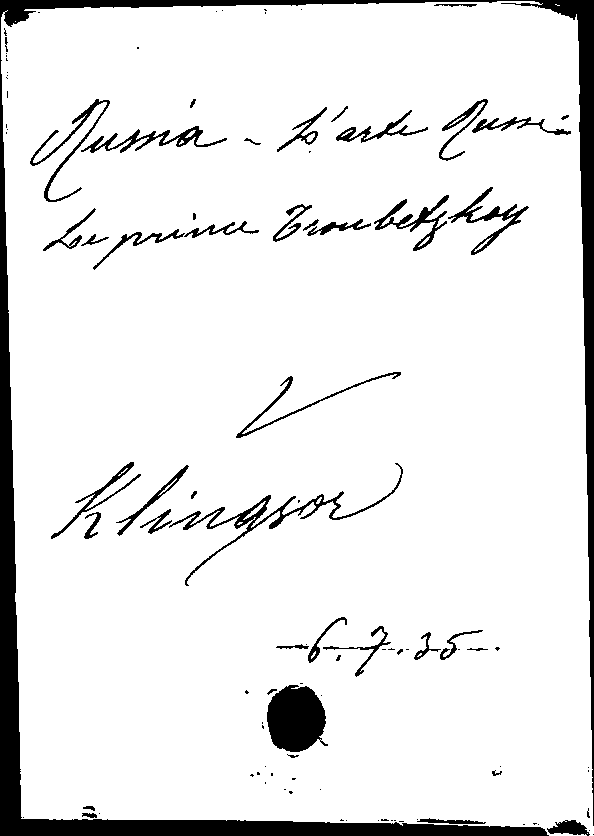 Russia - L'arte Russa
Le prince Troubetzkoy
Klingsor
6.7.35.